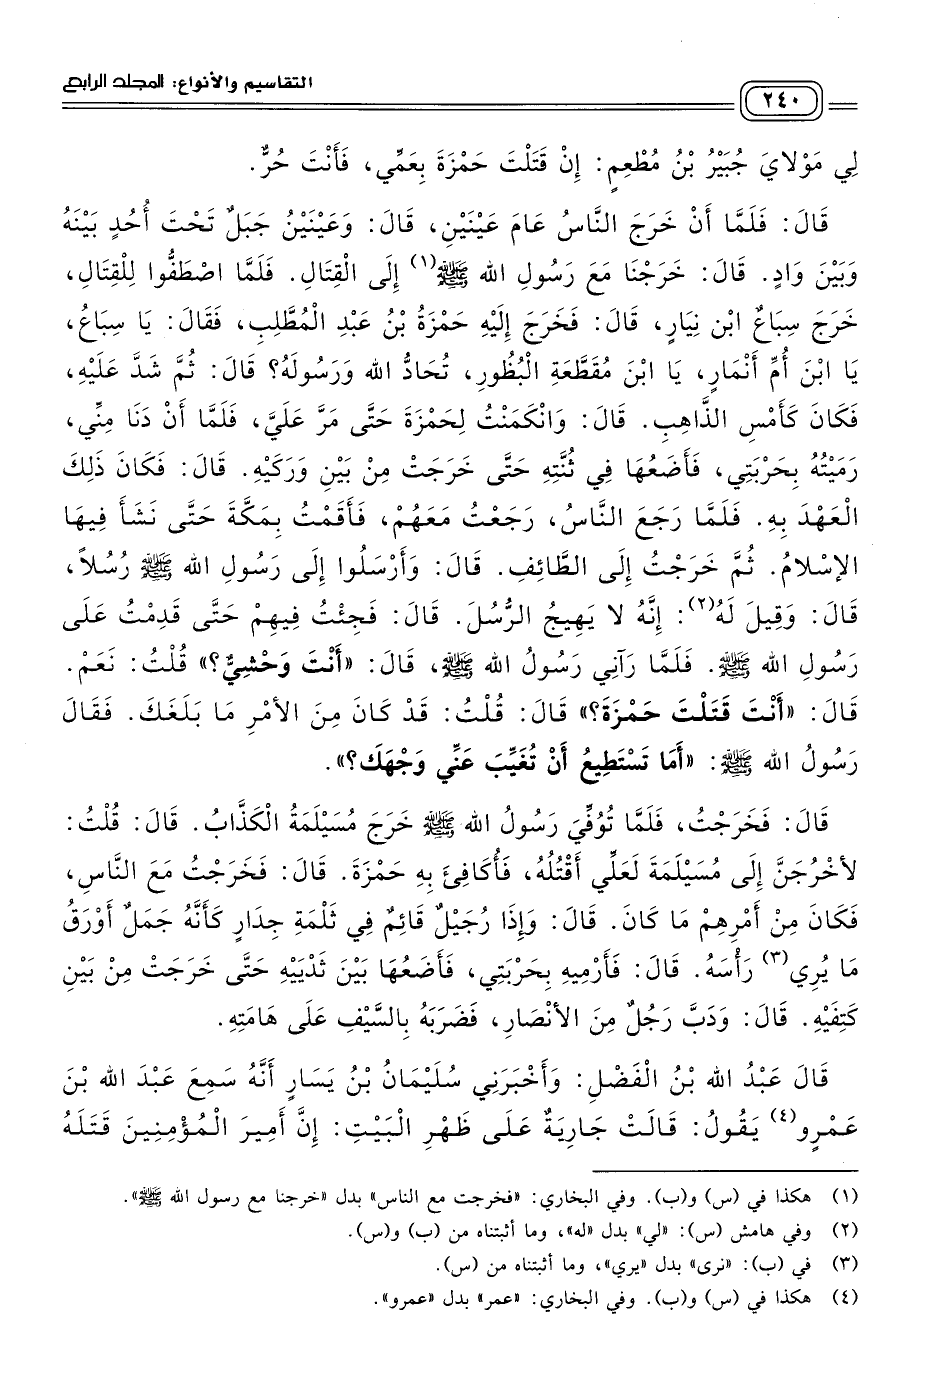 التقاسيم والأنواع: المجلد الرابع
٢٤٠
لِي مَوْلَايَ جُبَيْرُ بْنُ مُطْعِمٍ: إِنْ قَتَلْتَ حَمْزَةَ بِعَمِّي، فَأَنْتَ حُرٌّ.
قَالَ: فَلَمَّا أَنْ خَرَجَ النَّاسُ عَامَ عَيْنَيْنِ، قَالَ: وَعَيْنَيْنُ جَبَلٌ تَحْتَ أُحُدٍ بَيْنَهُ
وَبَيْنَ وَادٍ. قَالَ: خَرَجْنَا مَعَ رَسُولِ الله ﷺ(١) إِلَى الْقِتَالِ. فَلَمَّا اصْطَفُّوا لِلْقِتَالِ،
خَرَجَ سِبَاعٌ ابْن نِيَارٍ، قَالَ: فَخَرَجَ إِلَيْهِ حَمْزَةُ بْنُ عَبْدِ الْمُطَّلِبِ، فَقَالَ: يَا سِبَاعُ،
يَا ابْنَ أُمِّ أَنْمَارٍ، يَا ابْنَ مُقَطَّعَةِ الْبُظُورِ، تُحَادُّ الله وَرَسُولَهُ؟ قَالَ: ثُمَّ شَدَّ عَلَيْهِ،
فَكَانَ كَأَمْسِ الذَّاهِبِ. قَالَ: وَانْكَمَنْتُ لِحَمْزَةَ حَتَّى مَرَّ عَلَيَّ، فَلَمَّا أَنْ دَنَا مِنِّي،
رَمَيْتُهُ بِحَرْبَتِي، فَأَضَعُهَا فِي ثُنَّتِهِ حَتَّى خَرَجَتْ مِنْ بَيْنِ وَرَكَيْهِ. قَالَ: فَكَانَ ذَلِكَ
الْعَهْدَ بِهِ. فَلَمَّا رَجَعَ النَّاسُ، رَجَعْتُ مَعَهُمْ، فَأَقَمْتُ بِمَكَّةَ حَتَّى نَشَأَ فِيهَا
الإِسْلَامُ. ثُمَّ خَرَجْتُ إِلَى الطَّائِفِ. قَالَ: وَأَرْسَلُوا إِلَى رَسُولِ الله ﷺ رُسُلاً،
قَالَ: وَقِيلَ لَهُ(٢): إِنَّهُ لَا يَهِيجُ الرُّسُلَ. قَالَ: فَجِئْتُ فِيهِمْ حَتَّى قَدِمْتُ عَلَى
رَسُولِ الله ﷺ. فَلَمَّا رَآنِي رَسُولُ الله ﷺ، قَالَ: «أَنْتَ وَحْشِيٌّ؟» قُلْتُ: نَعَمْ.
قَالَ: «أَنْتَ قَتَلْتَ حَمْزَةَ؟» قَالَ: قُلْتُ: قَدْ كَانَ مِنَ الأَمْرِ مَا بَلَغَكَ. فَقَالَ
رَسُولُ الله ﷺ: «أَمَا تَسْتَطِيعُ أَنْ تُغَيِّبَ عَنِّي وَجْهَكَ؟».
قَالَ: فَخَرَجْتُ، فَلَمَّا تُوُفِّيَ رَسُولُ الله ﷺ خَرَجَ مُسَيْلَمَةُ الْكَذَّابُ. قَالَ: قُلْتُ:
لأَخْرُجَنَّ إِلَى مُسَيْلَمَةَ لَعَلِّي أَقْتُلُهُ، فَأُكَافِئَ بِهِ حَمْزَةَ. قَالَ: فَخَرَجْتُ مَعَ النَّاسِ،
فَكَانَ مِنْ أَمْرِهِمْ مَا كَانَ. قَالَ: وَإِذَا رُجَيْلٌ قَائِمٌ فِي ثَلْمَةِ جِدَارٍ كَأَنَّهُ جَمَلٌ أَوْرَقُ
مَا يُرِي(٣) رَأْسَهُ. قَالَ: فَأَرْمِيهِ بِحَرْبَتِي، فَأَضَعُهَا بَيْنَ ثَدْيَيْهِ حَتَّى خَرَجَتْ مِنْ بَيْنِ
كَتِفَيْهِ. قَالَ: وَدَبَّ رَجُلٌ مِنَ الأَنْصَارِ، فَضَرَبَهُ بِالسَّيْفِ عَلَى هَامَتِهِ.
قَالَ عَبْدُ الله بْنُ الْفَضْلِ: وَأَخْبَرَنِي سُلَيْمَانُ بْنُ يَسَارٍ أَنَّهُ سَمِعَ عَبْدَ الله بْنَ
عَمْرٍو(٤) يَقُولُ: قَالَتْ جَارِيَةٌ عَلَى ظَهْرِ الْبَيْتِ: إِنَّ أَمِيرَ الْمُؤْمِنِينَ قَتَلَهُ
(١) هكذا في (س) و(ب). وفي البخاري: «فخرجت مع الناس» بدل «خرجنا مع رسول الله ﷺ».
(٢) وفي هامش (س): «لي» بدل «له»، وما أثبتناه من (ب) و(س).
(٣) في (ب): «نرى» بدل «يري»، وما أثبتناه من (س).
(٤) هكذا في (س) و(ب). وفي البخاري: «عمر» بدل «عمرو».